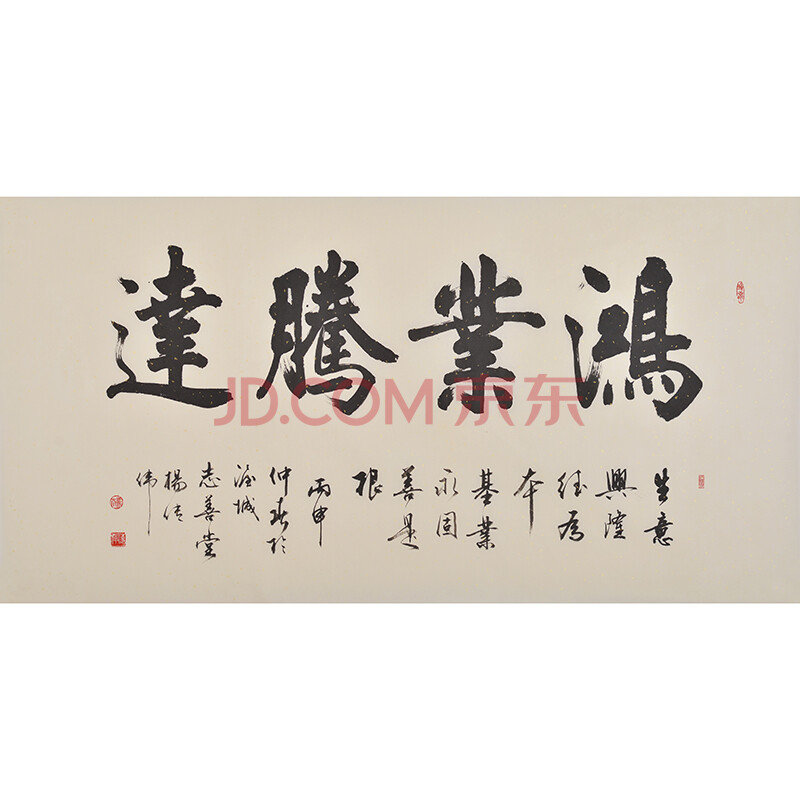 鴻業騰達
生意
興隆
德為
本
基業
永固
善是
根
丙申
仲 於
城
志善堂
楊
伟
JD.COM 京东